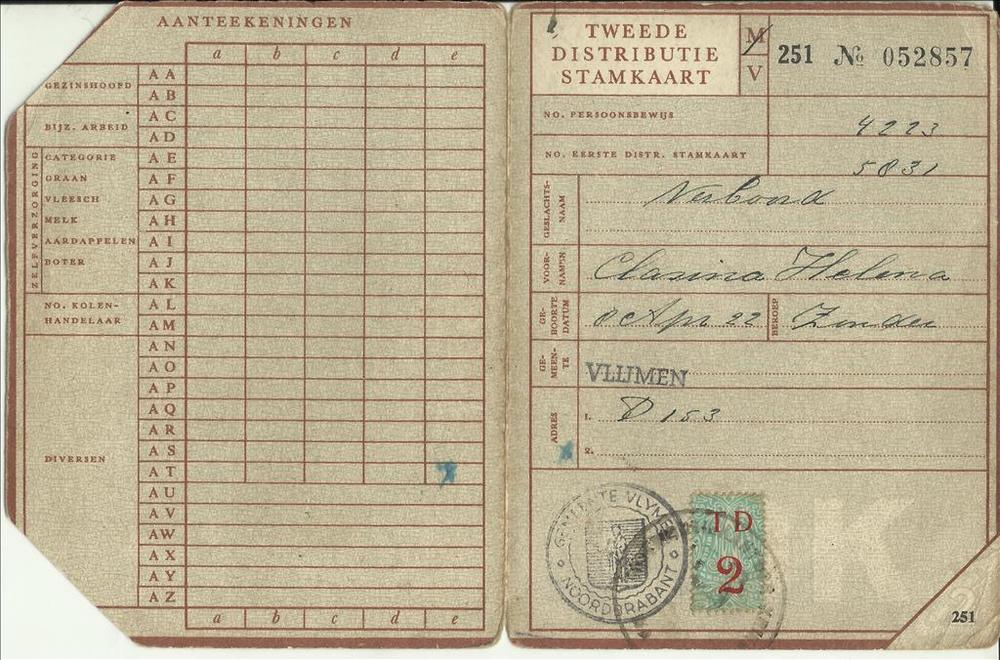 AANTEEKENINGEN
a b c d e
GEZINSHOOFD
A A
A B
BIJZ. ARBEID
A C
A D
ZELFVERZORGING
CATEGORIE A E
GRAAN A F
VLEESCH A G
MELK A H
AARDAPPELEN A I
BOTER A J
A K
NO. KOLEN-
HANDELAAR
A L
A M
A N
A O
A P
A Q
A R
A S
DIVERSEN
A T
A U
A V
A W
A X
A Y
A Z
a b c d e
TWEEDE
DISTRIBUTIE
STAMKAART
M
V
251 No 052857
NO. PERSOONSBEWIJS 4223
NO. EERSTE DISTR. STAMKAART 5831
GESLACHTS-
NAAM
Verboord
VOOR-
NAMEN
Clasina Helena
GE-
BOORTE
DATUM
Apr 22
BEROEP
Zonder
GE-
MEEN-
TE
VLIJMEN
ADRES
1. D 153
2.
GEMEENTE VLYMEN
NOORDBRABANT
TD
2
251